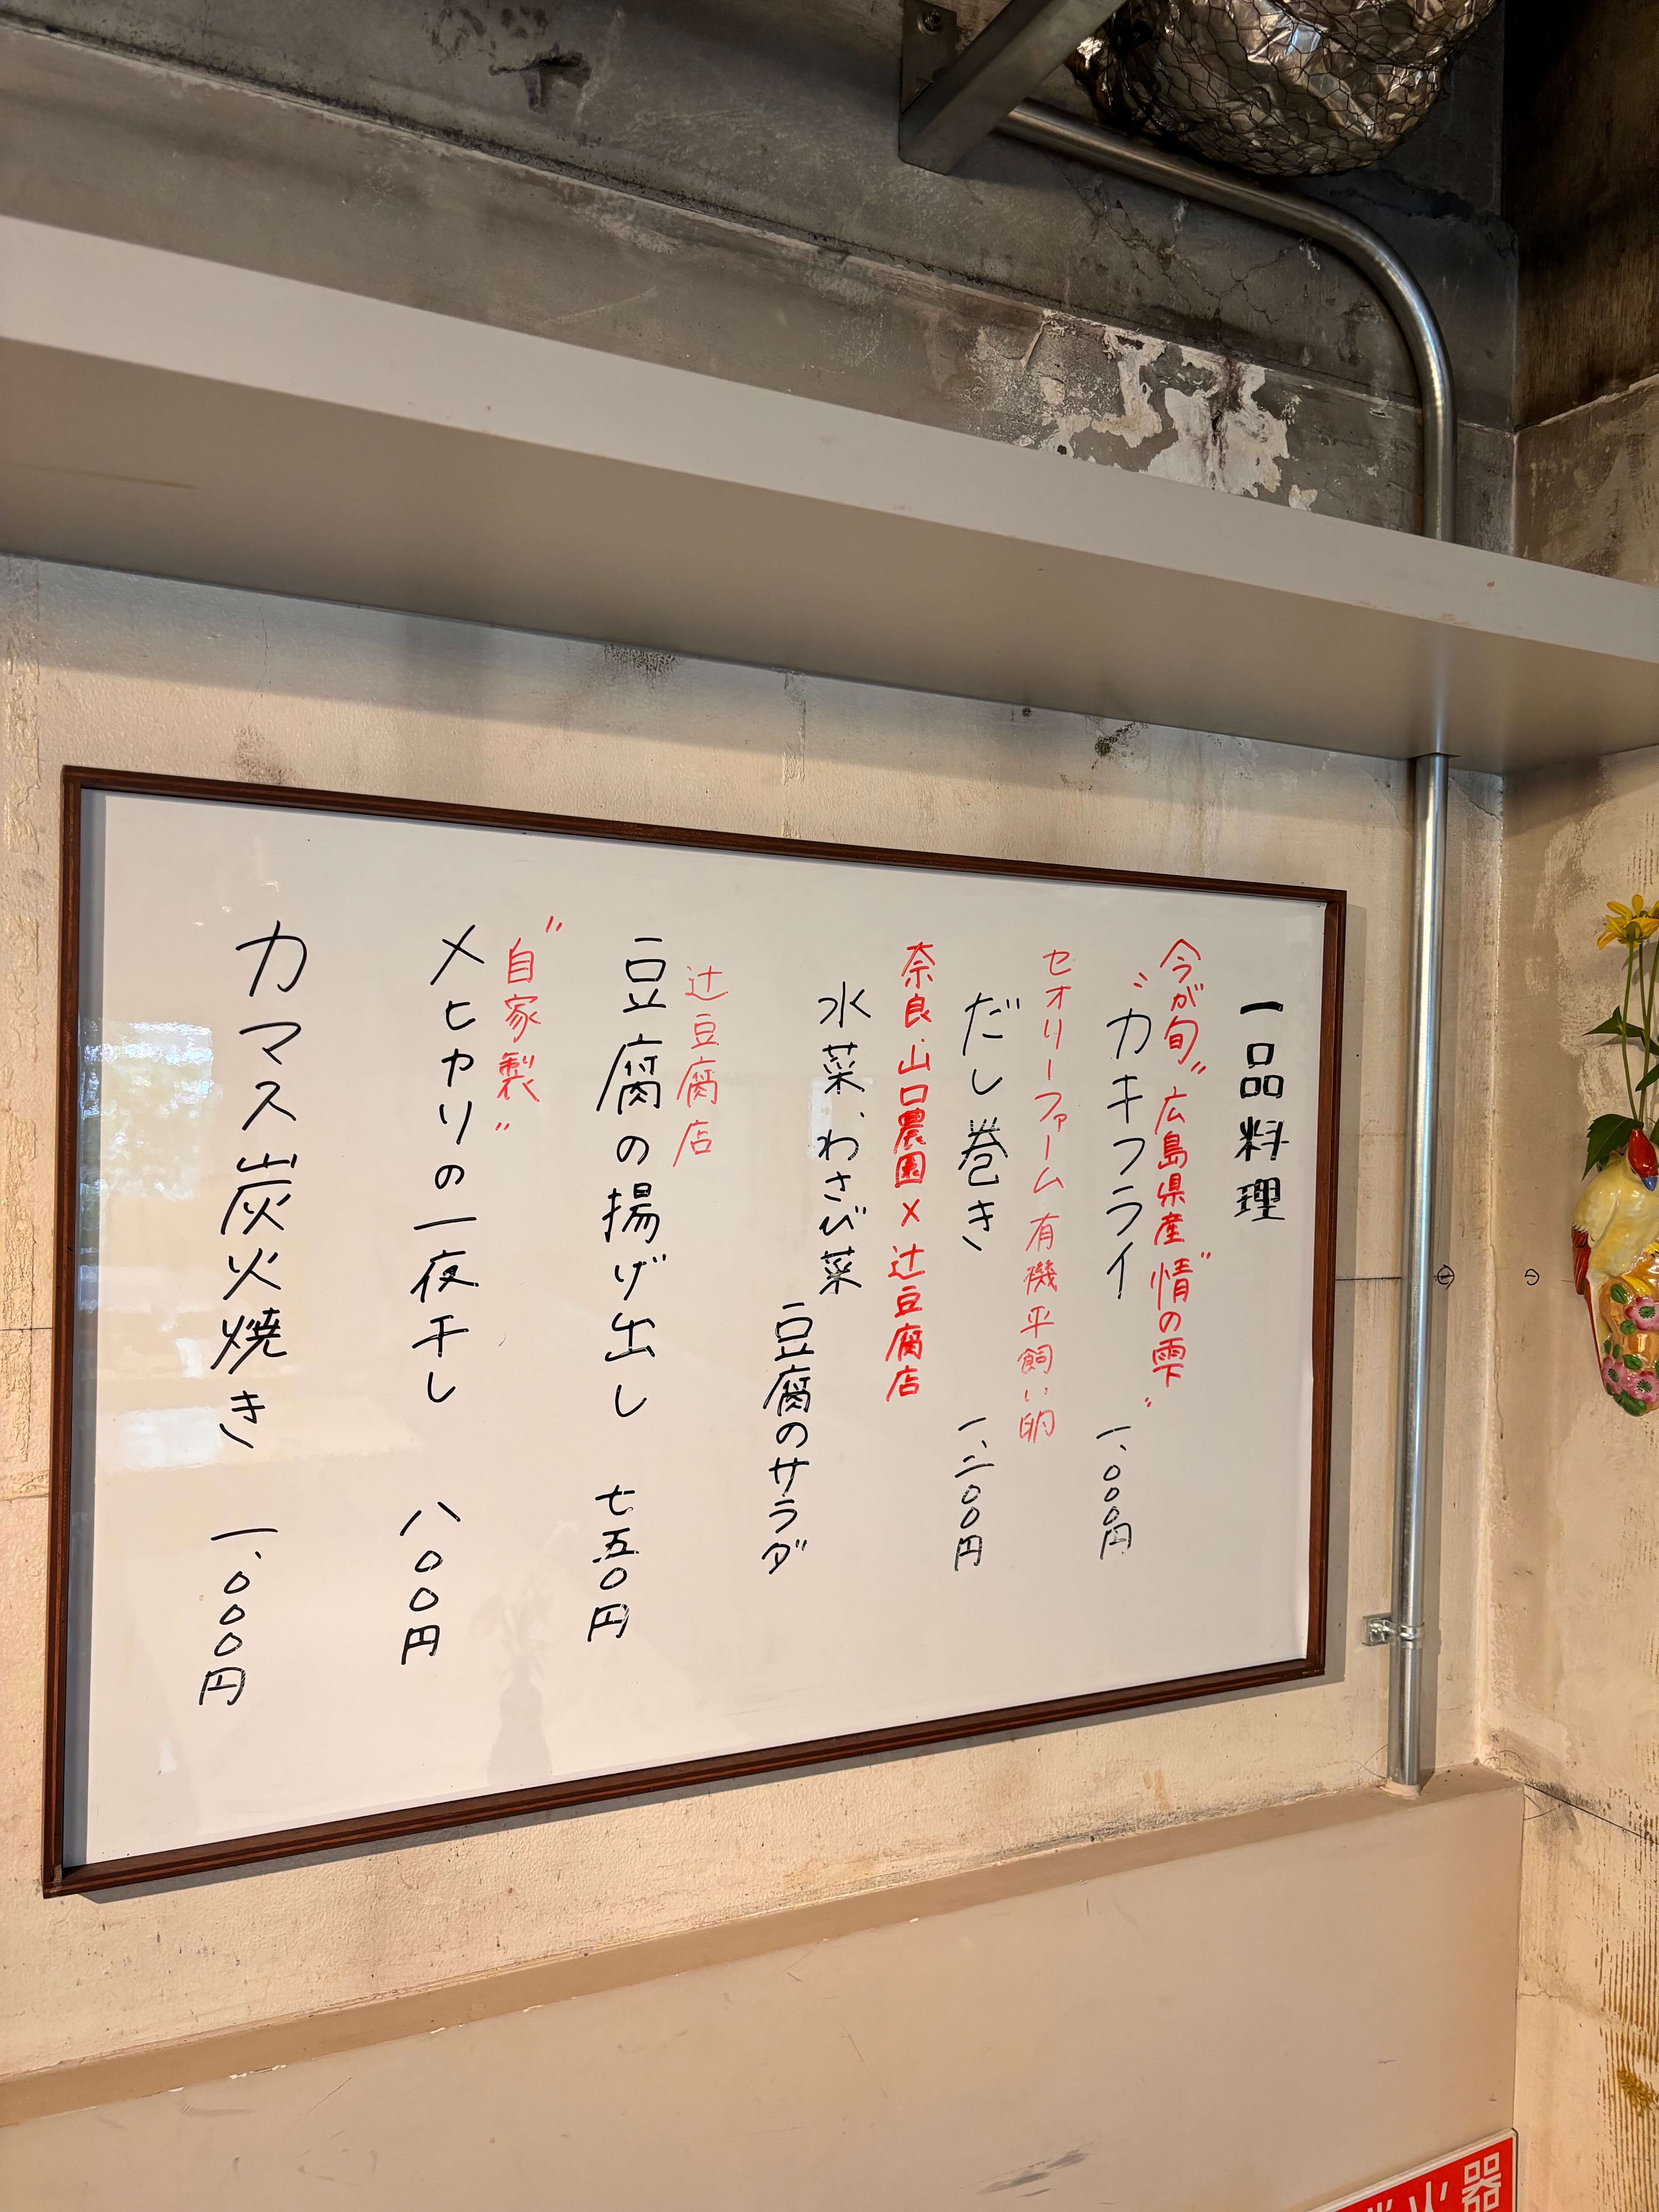 一品料理
今が旬〃広島県産〝情の雫〃
〝カキフライ 一、〇〇〇円
セオリーファーム有機平飼い卵
だし巻き 一、二〇〇円
奈良、山口農園×辻豆腐店
水菜、わさび菜
豆腐のサラダ
辻豆腐店
豆腐の揚げ出し 七五〇円
〝自家製〃
メヒカリの一夜干し 八〇〇円
カマス炭火焼き 一、〇〇〇円
火器